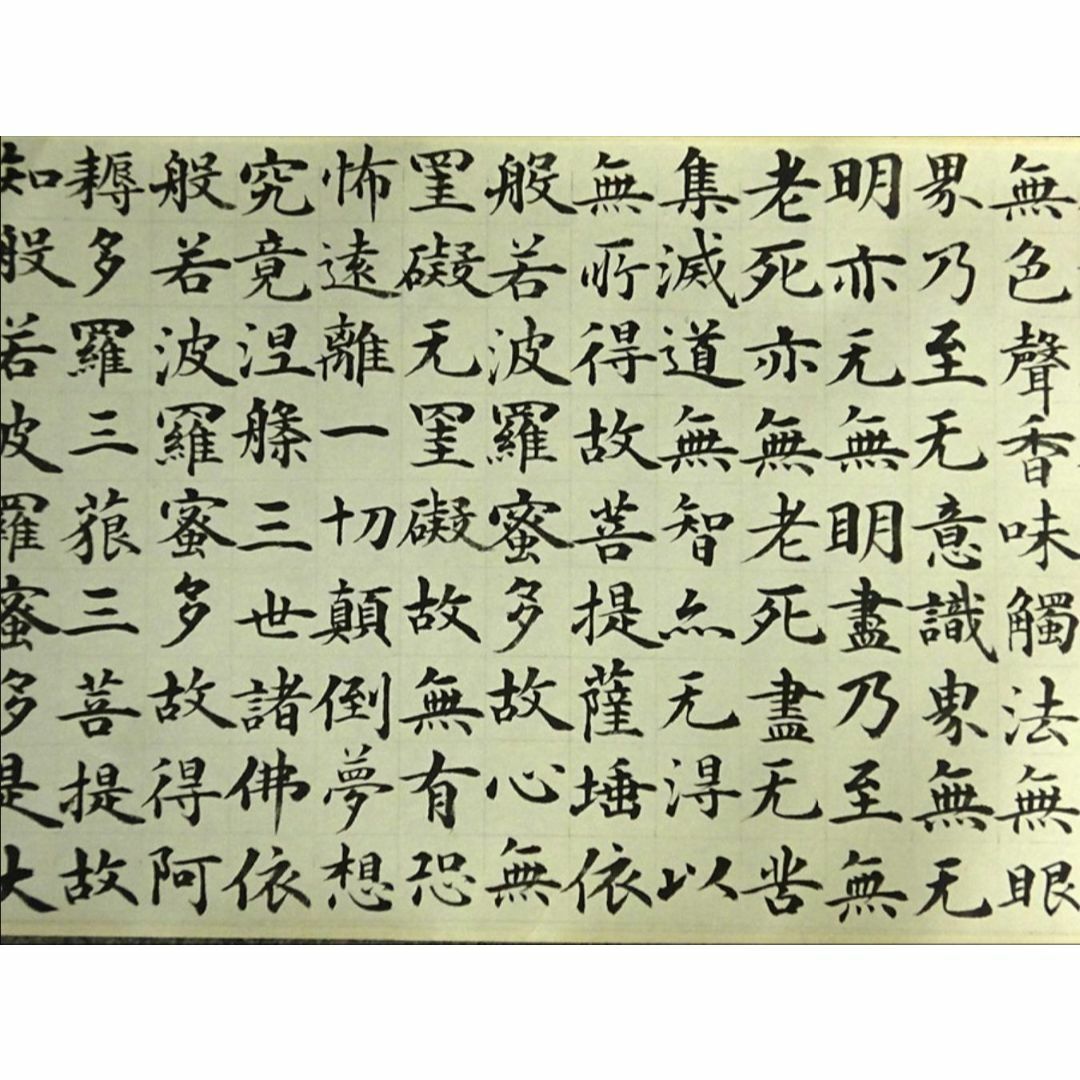 無色聲香味觸法無眼
界乃至无意識界無无
明亦无無明盡乃至無
老死亦無老死盡无苦
集滅道無智亦无得以
無所得故菩提薩埵依
般若波羅蜜多故心無
罣礙无罣礙故無有恐
怖遠離一切顛倒夢想
究竟涅槃三世諸佛依
般若波羅蜜多故得阿
耨多羅三藐三菩提故
知般若波羅蜜多是大